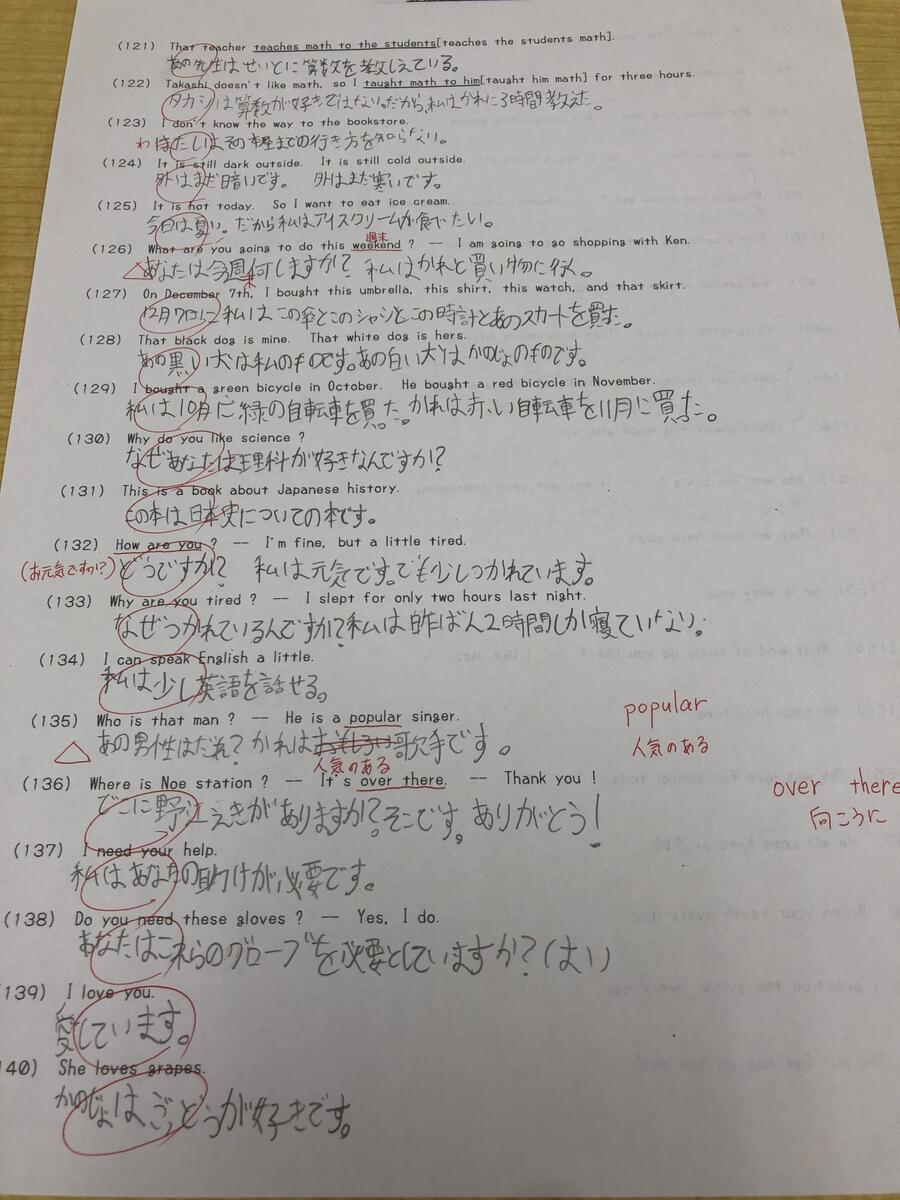 (121) That teacher teaches math to the students[teaches the students math].
あの先生はせいとに算数を教しえている。
(122) Takashi doesn't like math, so I taught math to him[taught him math] for three hours.
タカシは算数が好きではない。だから、私はかれに3時間教えた。
(123) I don't know the way to the bookstore.
わ たしはその本屋までの行き方を知らない。
(124) It is still dark outside. It is still cold outside.
外はまだ暗いです。 外はまだ寒いです。
(125) It is hot today. So I want to eat ice cream.
今日は夏い。だから私はアイスクリームが食べたい。
週末
(126) What are you going to do this weekend ? -- I am going to go shopping with Ken.
△あなたは今週末何しますか? 私はかれと買い物に行く。
(127) On December 7th, I bought this umbrella, this shirt, this watch, and that skirt.
12月7日に私はこの傘とこのシャツとこの時計とあのスカートを買った。
(128) That black dog is mine. That white dog is hers.
あの黒い犬は私のものです。あの白い犬はかのじょのものです。
(129) I bought a green bicycle in October. He bought a red bicycle in November.
私は10月に緑の自転車を買った。かれは赤い自転車を11月に買った。
(130) Why do you like science ?
なぜあなたは理科が好きなんですか?
(131) This is a book about Japanese history.
この本は日本史についての本です。
(132) How are you ? -- I'm fine, but a little tired.
(お元気ですか?) どうですか? 私は元気です。でも少しつかれています。
(133) Why are you tired ? -- I slept for only two hours last night.
なぜつかれているんですか?私は昨ばん2時間しか寝ていない。
(134) I can speak English a little.
私は少し英語を話せる。
(135) Who is that man ? -- He is a popular singer.
popular
△ あの男性はだれ? かれはおもしろい歌手です。
人気のある
人気のある
(136) Where is Noe station ? -- It's over there. -- Thank you !
over there
どこに野江えきがありますか?そこです。ありがとう!
向こうに
(137) I need your help.
私はあなたの助けが必要です。
(138) Do you need these gloves ? -- Yes, I do.
あなたはこれらのグローブを必要としていますか?(はい)
(139) I love you.
愛しています。
40) She loves grapes.
かのじょはぶどうが好きです。